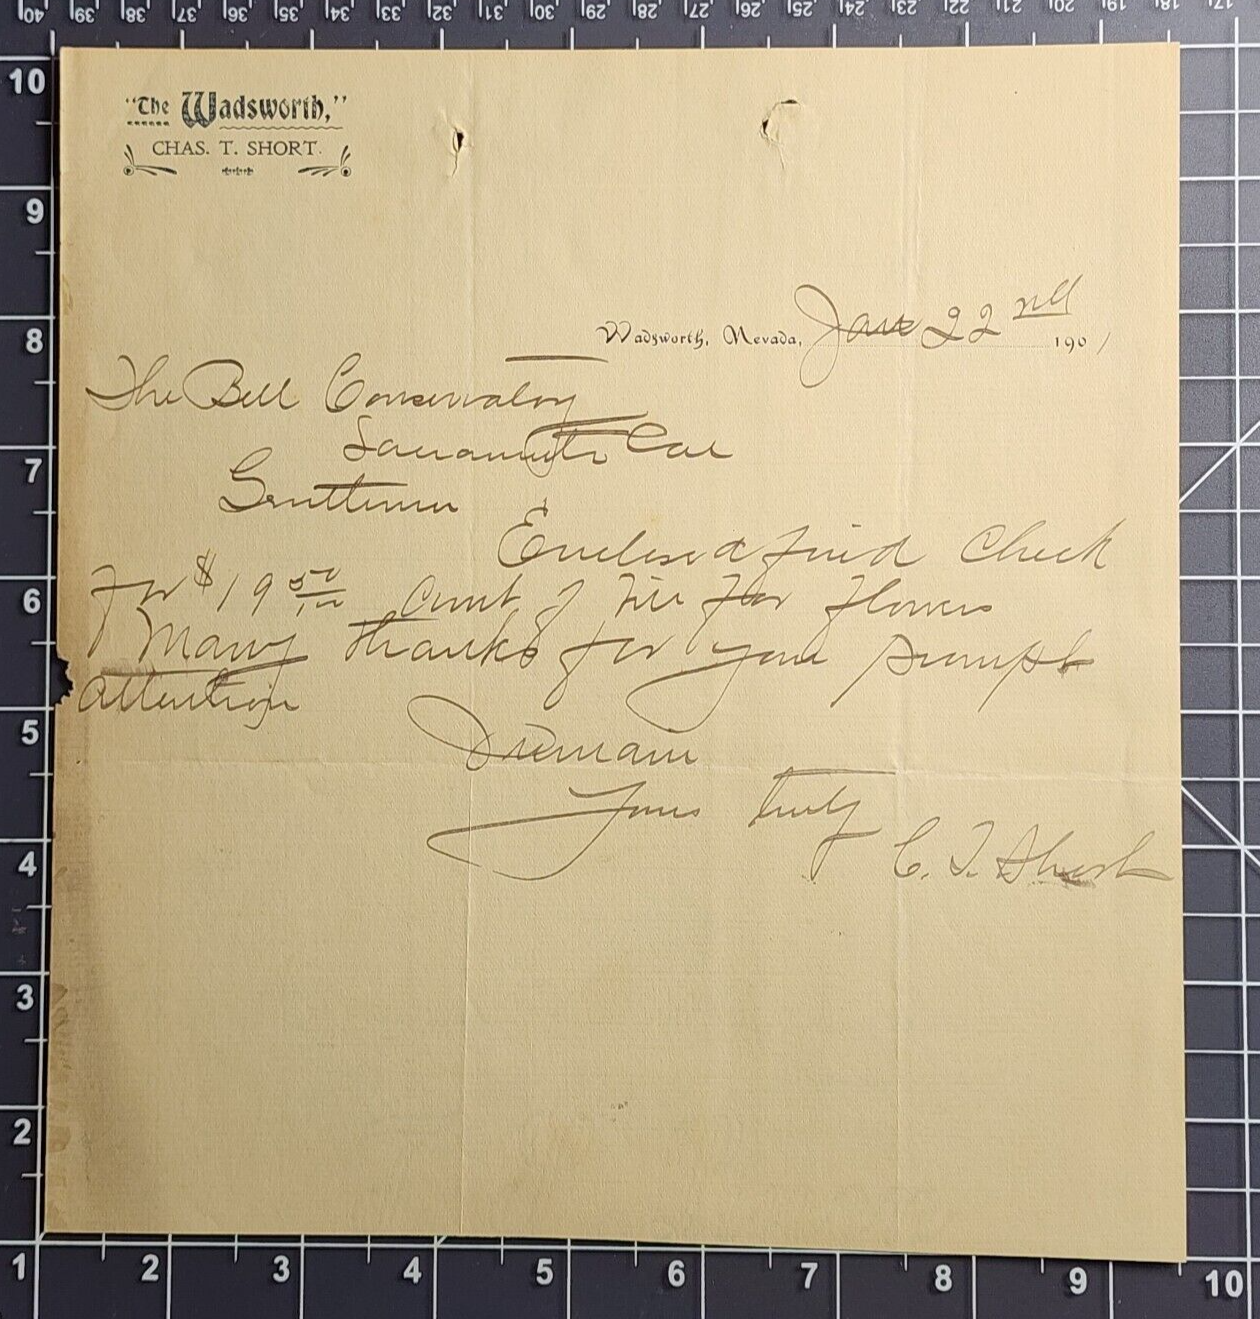 "The Wadsworth,"
CHAS. T. SHORT.
Wadsworth, Nevada, Jan 22nd 1901
The Bell Conservatory
Sacramento Cal
Gentlemen
Enclosed find Check
for $19 50/100 amt of Bill for flowers
Many thanks for your prompt
attention
I remain
Yours truly
C. T. Short
40 39 38 37 36 35 34 33 32 31 30 29 28 27 26 25 24 23 22 21 20 19 18 17
10
9
8
7
6
5
4
3
2
1 2 3 4 5 6 7 8 9 10